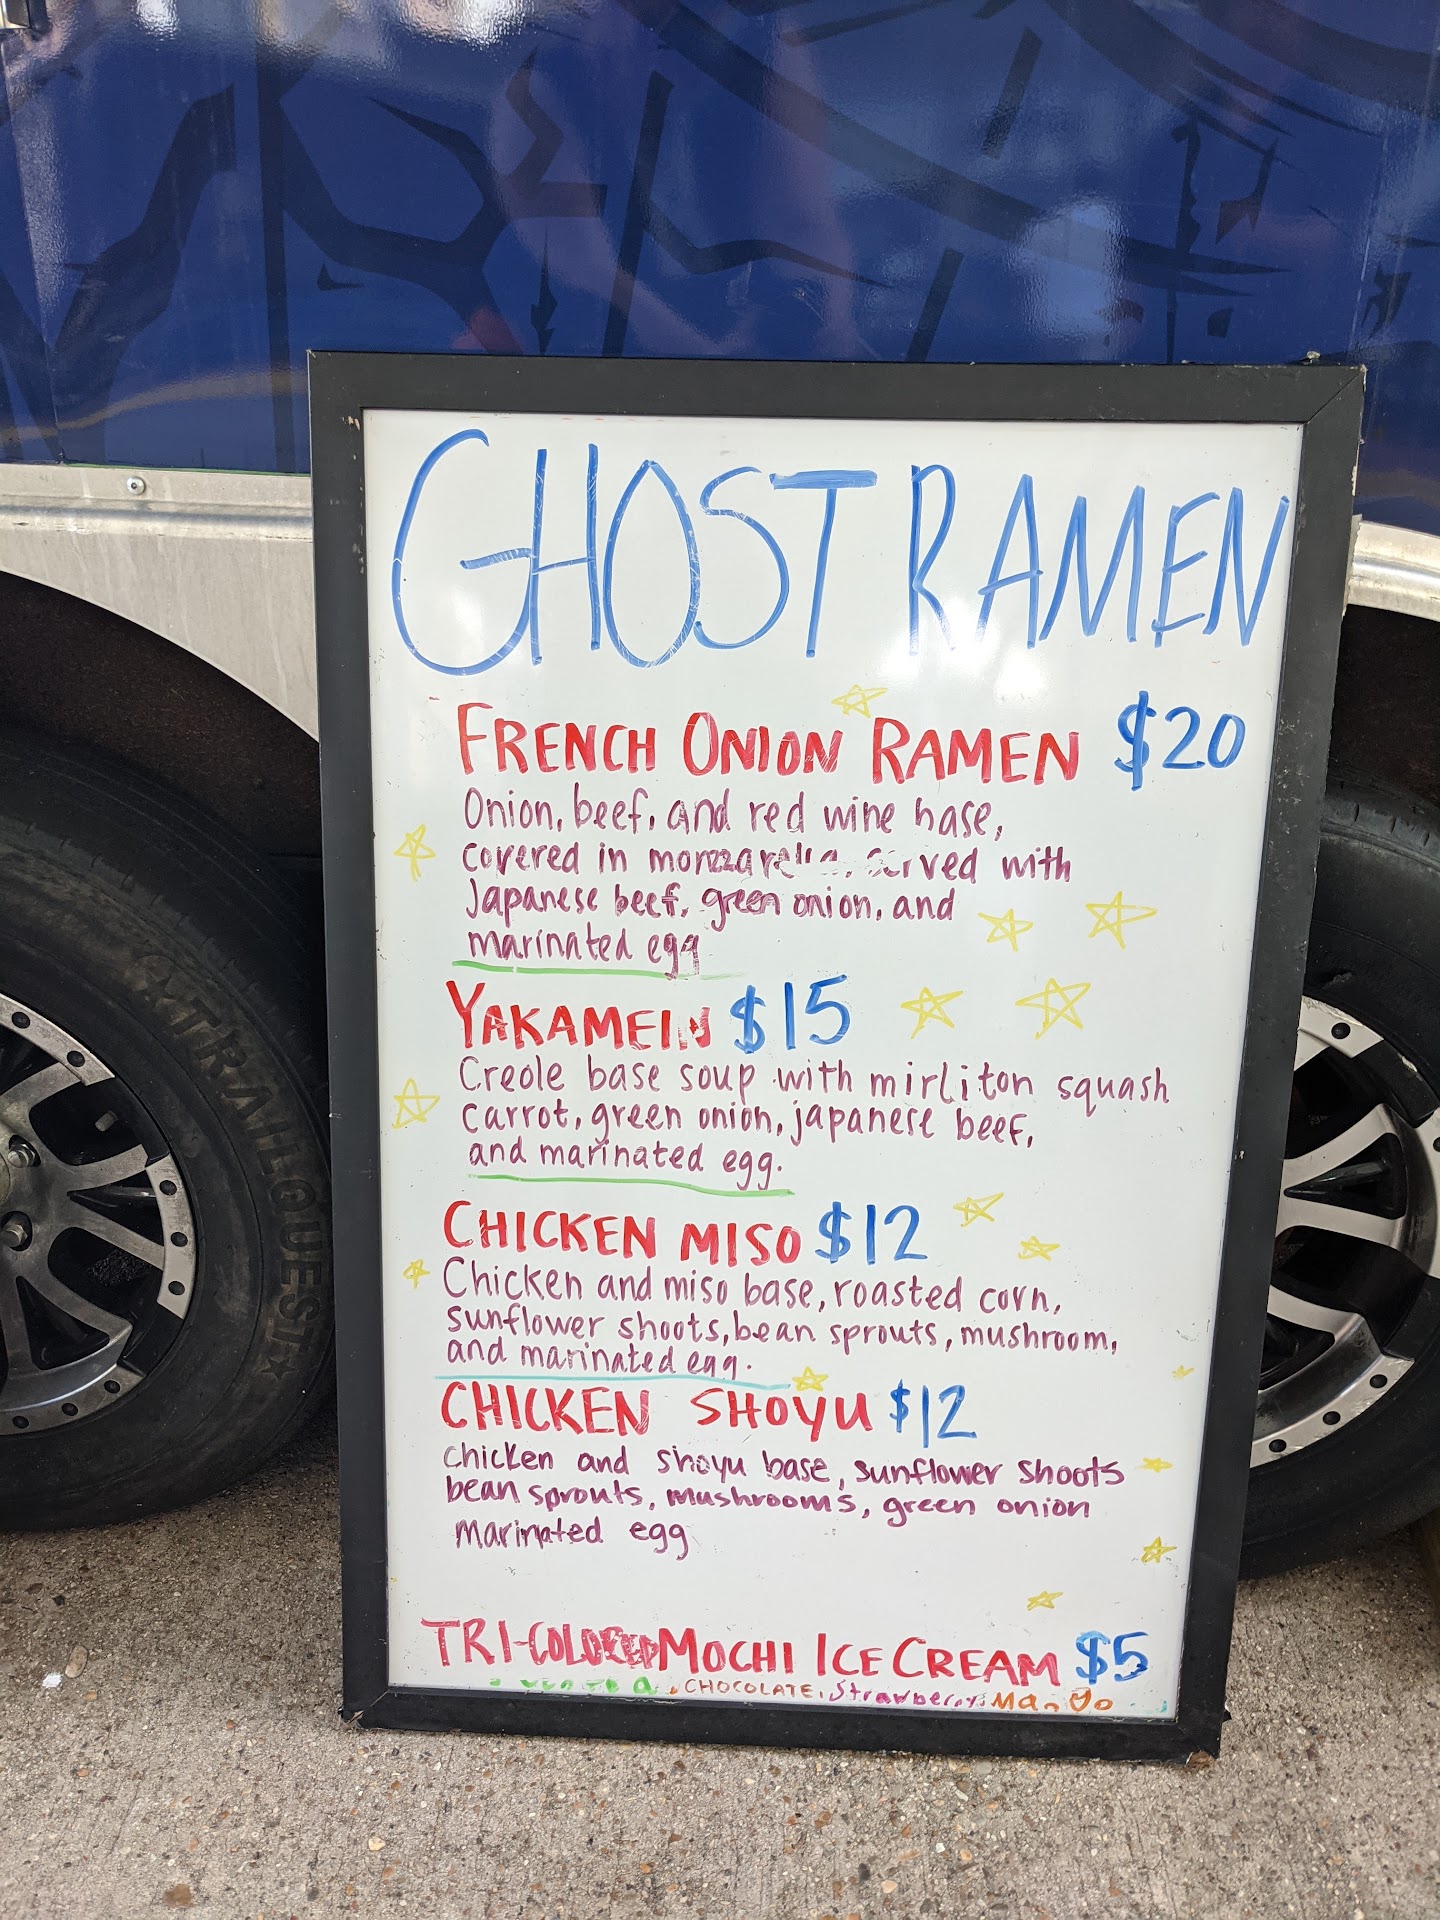 GHOST RAMEN
FRENCH ONION RAMEN $20
Onion, beef, and red wine base,
covered in morzzarella, served with
Japanese beef, green onion, and
marinated egg
YAKAMEIN $15
Creole base soup with mirliton squash
carrot, green onion, japanese beef,
and marinated egg.
CHICKEN MISO $12
Chicken and miso base, roasted corn,
sunflower shoots, bean sprouts, mushroom,
and marinated egg.
CHICKEN SHOYU $12
chicken and shoyu base, sunflower shoots
bean sprouts, mushrooms, green onion
marinated egg
TRI-COLORED MOCHI ICE CREAM $5
CHOCOLATE, Strawberry, Mango
AT TRAILQUEST